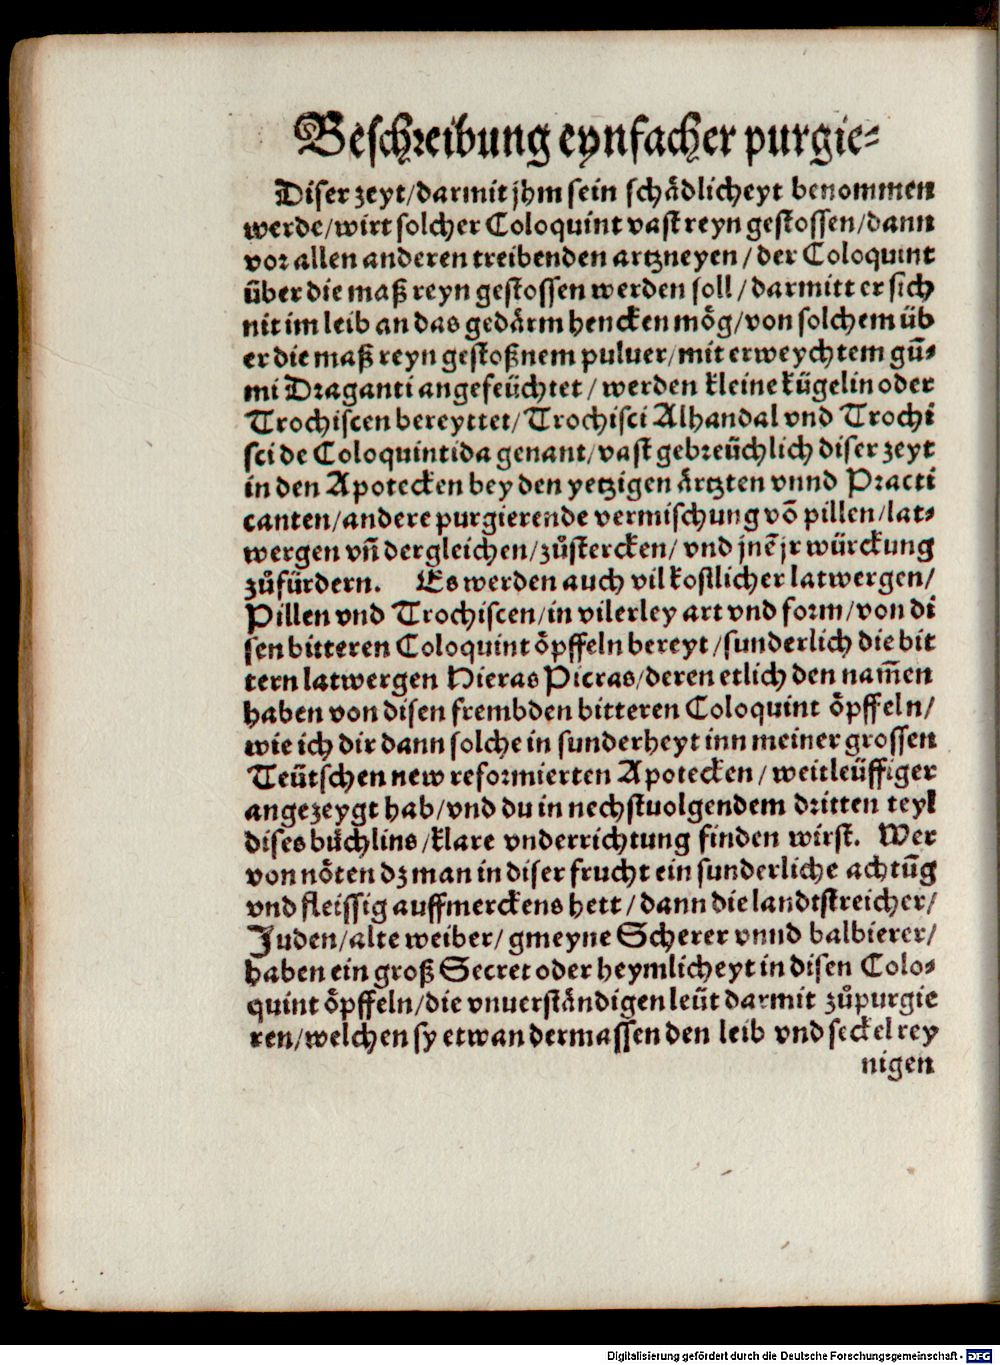 Beschreibung eynfacher purgie⸗
Diser zeyt/darmit jhm sein schådlicheyt benommen
werde/wirt solcher Coloquint vast reyn gestossen/dann
vor allen anderen treibenden artzneyen/der Coloquint
über die maß reyn gestossen werden soll/darmitt er sich
nit im leib an das gedårm hencken mög/von solchem üb
er die maß reyn gestoßnem puluer/mit erweychtem gū⸗
mi Draganti angefeüchtet/werden kleine kügelin oder
Trochiscen bereyttet/Trochisci Alhandal vnd Trochi
sci de Coloquintida genant/vast gebreüchlich diser zeyt
in den Apotecken bey den yetzigen årtzten vnnd Practi
canten/andere purgierende vermischung võ pillen/lat⸗
wergen vñ dergleichen/zůstercken/vnd jnẽ jr würckung
zůfürdern. Es werden auch vil kostlicher latwergen/
Pillen vnd Trochiscen/in vilerley art vnd form/von di
sen bitteren Coloquint öpffeln bereyt/sunderlich die bit
tern latwergen Hieras Picras/deren etlich den nam̃en
haben von disen frembden bitteren Coloquint öpffeln/
wie ich dir dann solche in sunderheyt inn meiner grossen
Teütschen new reformierten Apotecken/weitleüffiger
angezeygt hab/vnd du in nechstuolgendem dritten teyl
dises büchlins/klare vnderrichtung finden wirst. Wer
von nöten dz man in diser frucht ein sunderliche achtūg
vnd fleissig auffmerckens hett/dann die landtstreicher/
Juden/alte weiber/gmeyne Scherer vnnd balbierer/
haben ein groß Secret oder heymlicheyt in disen Colo⸗
quint öpffeln/die vnuerståndigen leüt darmit zůpurgie
ren/welchen sy etwan dermassen den leib vnd seckel rey
nigen
Digitalisierung gefördert durch die Deutsche Forschungsgemeinschaft - DFG